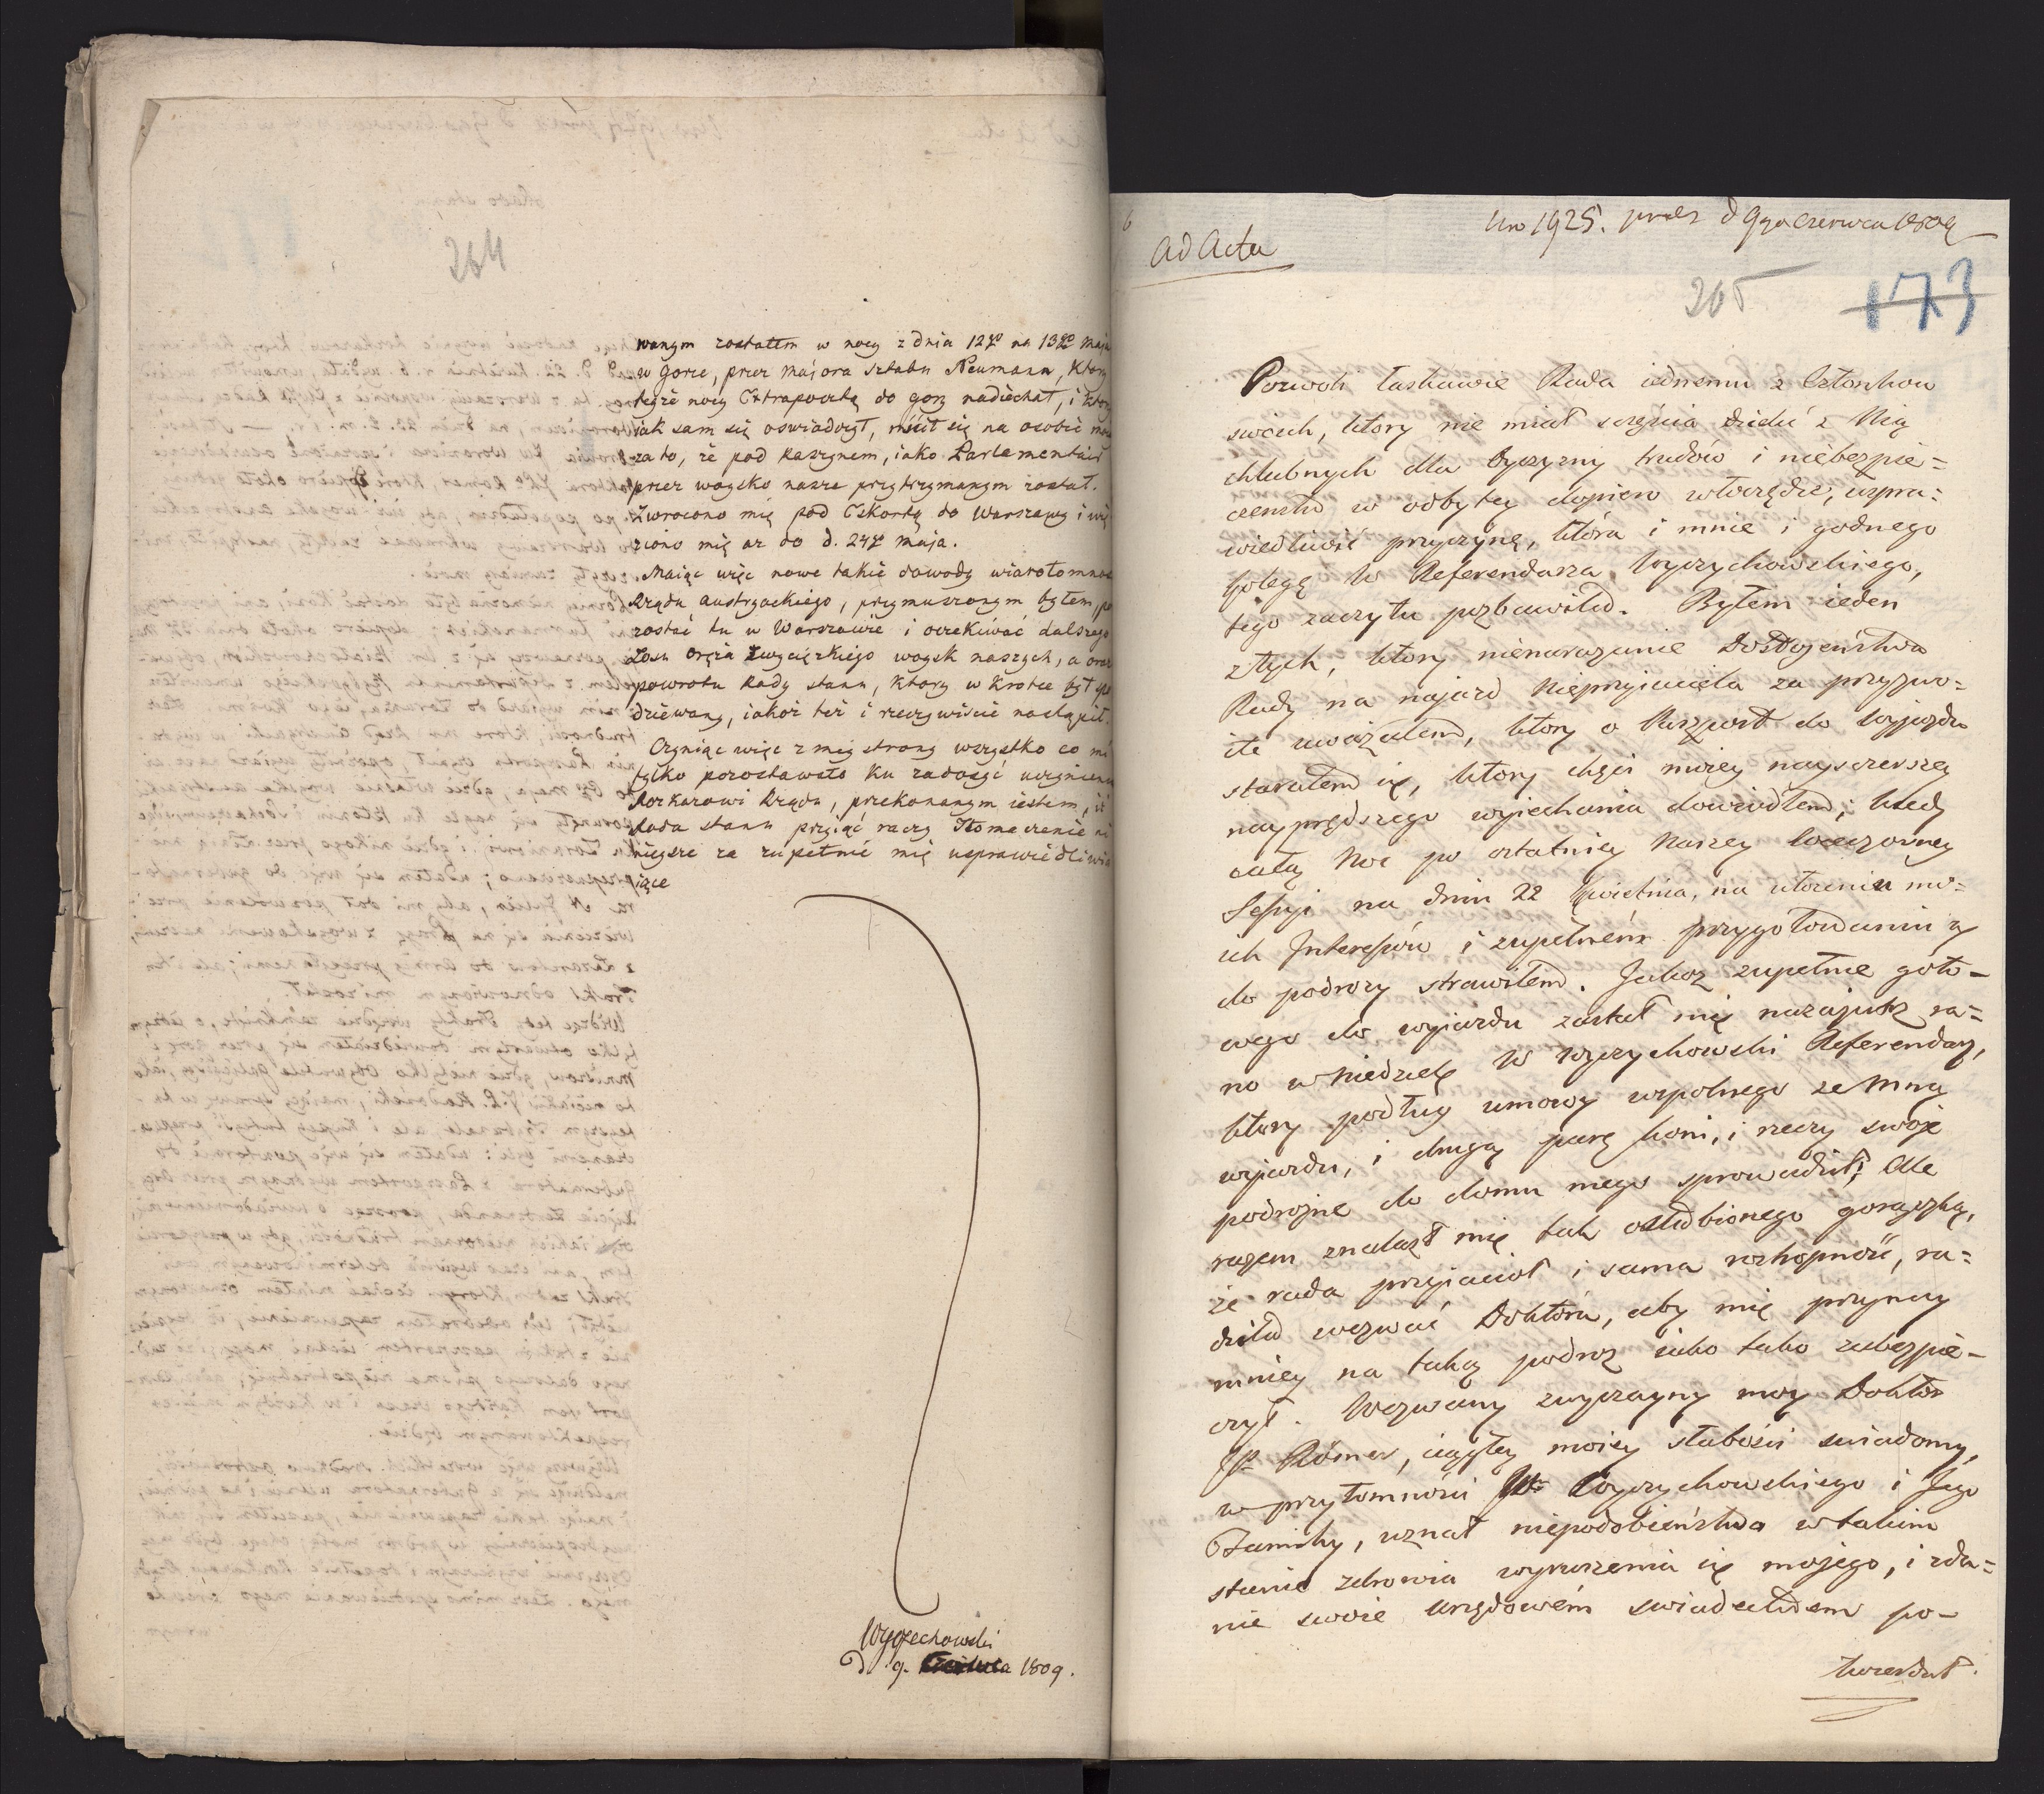 264
wanym zostałem w nocy z dnia 12go na 13go maja
w Gorze, przez majora sztabu Neumann, Ktory
teyże nocy Extrapocztą do gory nadiechał, i Ktory
iak sam się oswiadczył, mścił się na osobie moiey
za to, że pod Raszynem, iako Parlementair
przez woysko nasze przytrzymanym został.
Zwrocono mię pod Eskortą do Warszawy i wię
ziono mię az do d. 24go maja.
Maiąc więc nowe takie dowody wiarołomnos
Rządu austryackiego, przymuszonym byłem, po
zostać tu w Warszawie i oczekiwać dalszego
Losu oręża zwycięzkiego woysk naszych, a oraz
powrotu Rady stanu, Ktory w krotce był spo
dziewany, iakoż też i rzeczywiście nastąpił.
Czyniąc więc z mey strony wszystko co mi
tylko pozostawało ku zadosyć uczynieniu
Rozkazowi Rządu, przekonanym iestem, iż
Rada stanu przyiąć raczy Tłomaczenie ni
nieysze za zupełnie mię usprawiedliwia
iące
Wyczechowski
d. 9. Czerwca 1809.
6
Ad Acta
Nro 1925. praes d 9go Czerwca 1809
265
173
Pozwol łaskawie Rada iednemu z Członkow
swoich, ktory nie miał szczęścia dzielić z Nią
chlubnych dla Oyczyzny trudów i niebezpie=
czenstw w odbytey dopiero włoczędze, uspra=
wiedliwić przyczynę, która i mnie i godnego
Kolegę W Referendarza Wyczechowskiego,
tego zaczytu pozbawiła. Byłem ieden
z tych, ktory nienarazanie Dostojeństwa
Rady na najazd Nieprzyjaciela za przyzwo=
ite uważałem, ktory o Paszport do wyjazdu
starałem się, ktory chęci moiey nayszczerszey
nayprędszego wyiechania dowiodłem; kiedy
całą Noc po ostatniey naszey wieczorney
Sessyi na dniu 22 Kwietnia, na ułożeniu mo=
ich Interessów i zupełném przygotowaniu
do podrozy strawiłem. Jakoz zupełnie goto-
wego do wyiazdu zastał mię nazajutrz ra=
no w Niedzielę W Wyczechowski Referendarz,
ktory podług umowy wspolnego ze Mną
wyjazdu, i drugą parę koni, i rzeczy swoje
podrozne do domu mego sprowadził; Ale
razem znalazł mię tak osłabionego gorączką,
że rada przyiacioł i sama roztropność, ra=
dziła wezwać Doktora, aby mię przynay
mniey na taką podroz iako tako zabezpie-
czył. Wezwany zwyczayny moy Doktor
JP Römer, ciągłey moiey słabości swiadomy,
w przytomności W Wyczechowskiego i Jego
Familij, uznał niepodobieństwo w takim
stanie zdrowia wyruszenia się mojego, i zda=
nie swoie urzędowém swiadectwem po-
twierdził.